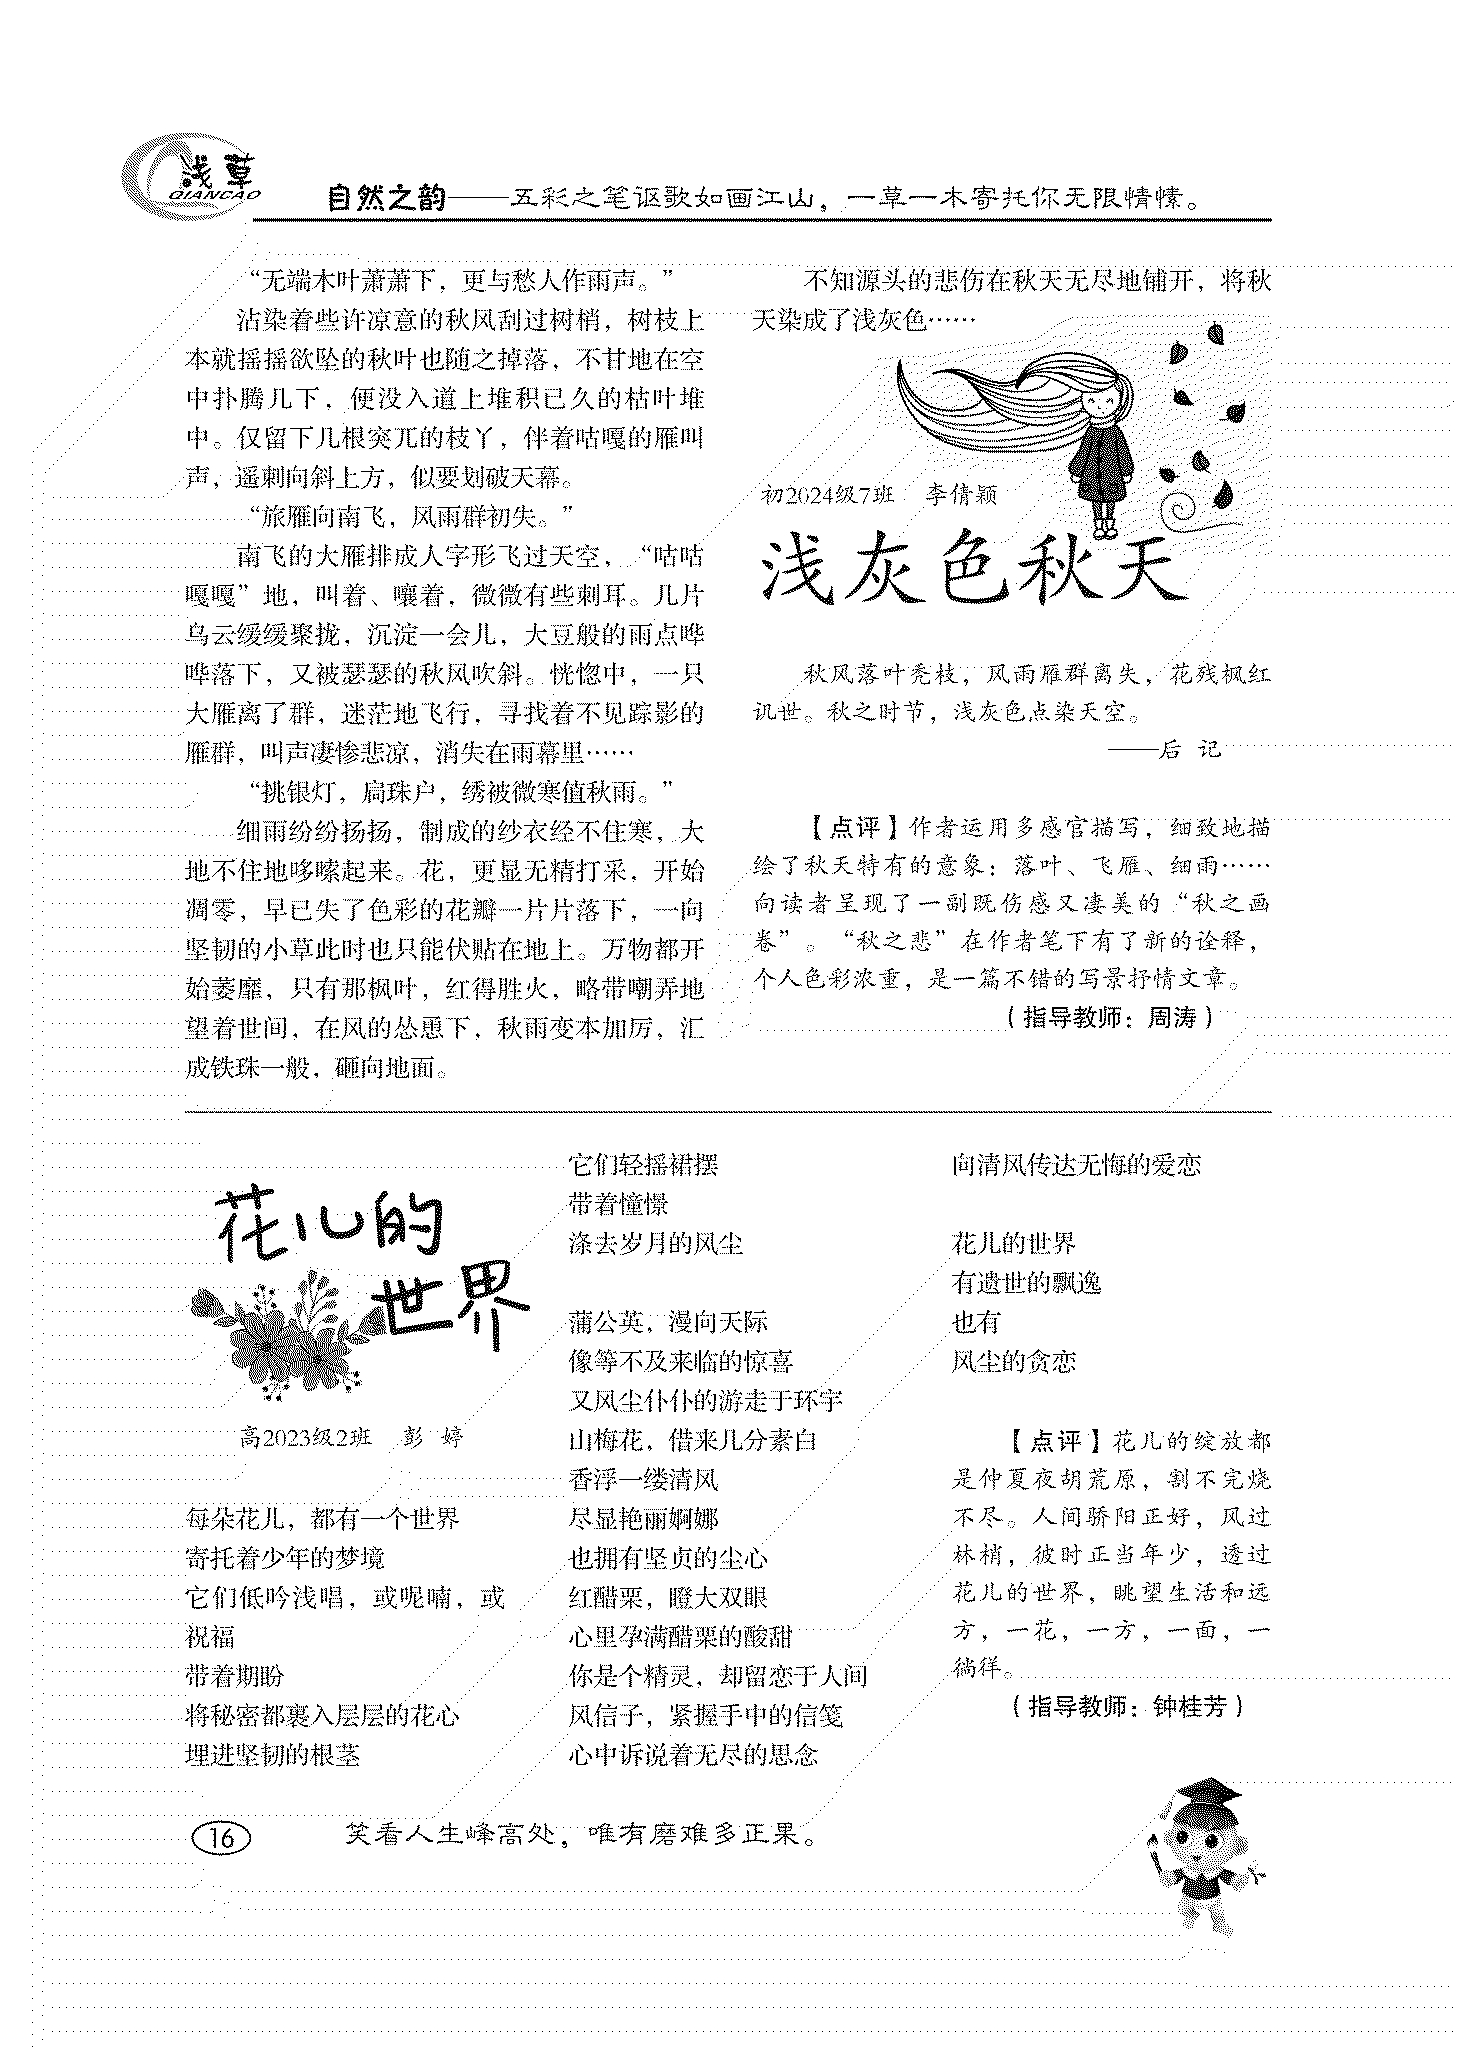 浅草
QIANCAO
自然之韵——五彩之笔讴歌如画江山，一草一木寄托你无限情愫。
“无端木叶萧萧下，更与愁人作雨声。”
沾染着些许凉意的秋风刮过树梢，树枝上
本就摇摇欲坠的秋叶也随之掉落，不甘地在空
中扑腾几下，便没入道上堆积已久的枯叶堆
中。仅留下几根突兀的枝丫，伴着咕嘎的雁叫
声，遥刺向斜上方，似要划破天幕。
“旅雁向南飞，风雨群初失。”
南飞的大雁排成人字形飞过天空，“咕咕
嘎嘎”地，叫着、嚷着，微微有些刺耳。几片
乌云缓缓聚拢，沉淀一会儿，大豆般的雨点哗
哗落下，又被瑟瑟的秋风吹斜。恍惚中，一只
大雁离了群，迷茫地飞行，寻找着不见踪影的
雁群，叫声凄惨悲凉，消失在雨幕里……
“挑银灯，扃珠户，绣被微寒值秋雨。”
细雨纷纷扬扬，制成的纱衣经不住寒，大
地不住地哆嗦起来。花，更显无精打采，开始
凋零，早已失了色彩的花瓣一片片落下，一向
坚韧的小草此时也只能伏贴在地上。万物都开
始萎靡，只有那枫叶，红得胜火，略带嘲弄地
望着世间，在风的怂恿下，秋雨变本加厉，汇
成铁珠一般，砸向地面。
不知源头的悲伤在秋天无尽地铺开，将秋
天染成了浅灰色……
初2024级7班 李倩颖
浅灰色秋天
秋风落叶秃枝，风雨雁群离失，花残枫红
讥世。秋之时节，浅灰色点染天空。
——后 记
【点评】作者运用多感官描写，细致地描
绘了秋天特有的意象：落叶、飞雁、细雨……
向读者呈现了一副既伤感又凄美的“秋之画
卷”。“秋之悲”在作者笔下有了新的诠释，
个人色彩浓重，是一篇不错的写景抒情文章。
（指导教师：周涛）
花儿的
世界
高2023级2班 彭 婷
每朵花儿，都有一个世界
寄托着少年的梦境
它们低吟浅唱，或呢喃，或
祝福
带着期盼
将秘密都裹入层层的花心
埋进坚韧的根茎
它们轻摇裙摆
带着憧憬
涤去岁月的风尘
蒲公英，漫向天际
像等不及来临的惊喜
又风尘仆仆的游走于环宇
山梅花，借来几分素白
香浮一缕清风
尽显艳丽婀娜
也拥有坚贞的尘心
红醋栗，瞪大双眼
心里孕满醋栗的酸甜
你是个精灵，却留恋于人间
风信子，紧握手中的信笺
心中诉说着无尽的思念
向清风传达无悔的爱恋
花儿的世界
有遗世的飘逸
也有
风尘的贪恋
【点评】花儿的绽放都
是仲夏夜胡荒原，割不完烧
不尽。人间骄阳正好，风过
林梢，彼时正当年少，透过
花儿的世界，眺望生活和远
方，一花，一方，一面，一
徜徉。
（指导教师：钟桂芳）
16
笑看人生峰高处，唯有磨难多正果。